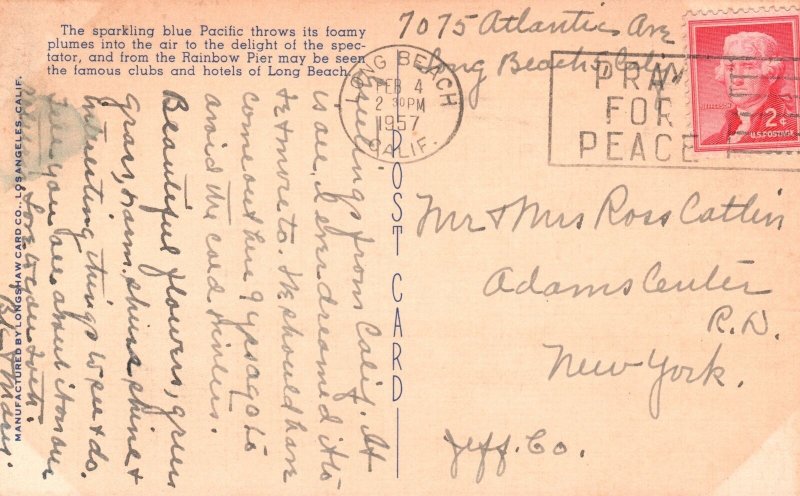 The sparkling blue Pacific throws its foamy
plumes into the air to the delight of the spec-
tator, and from the Rainbow Pier may be seen
the famous clubs and hotels of Long Beach.
7075 Atlantic Ave
Long Beach 5 Calif
LONG BEACH
FEB 4
2 30 PM
1957
CALIF.
PRAY
FOR
PEACE
JEFFERSON
2¢
U.S. POSTAGE
POST CARD
Mr & Mrs Ross Catlin
Adams Center
R.D.
New York.
Jeff. Co.
Greetings from Calif. It
is all I ever dreamed it to
be & more to. We should have
come out here 9 yrs ago to
avoid the cold winters.
Beautiful flowers, green
grass, warm. shine shine &
interesting things to see & do.
tell you all about it on our
return. Love to you both.
& Marie.
MANUFACTURED BY LONGSHAW CARD CO., LOS ANGELES, CALIF.